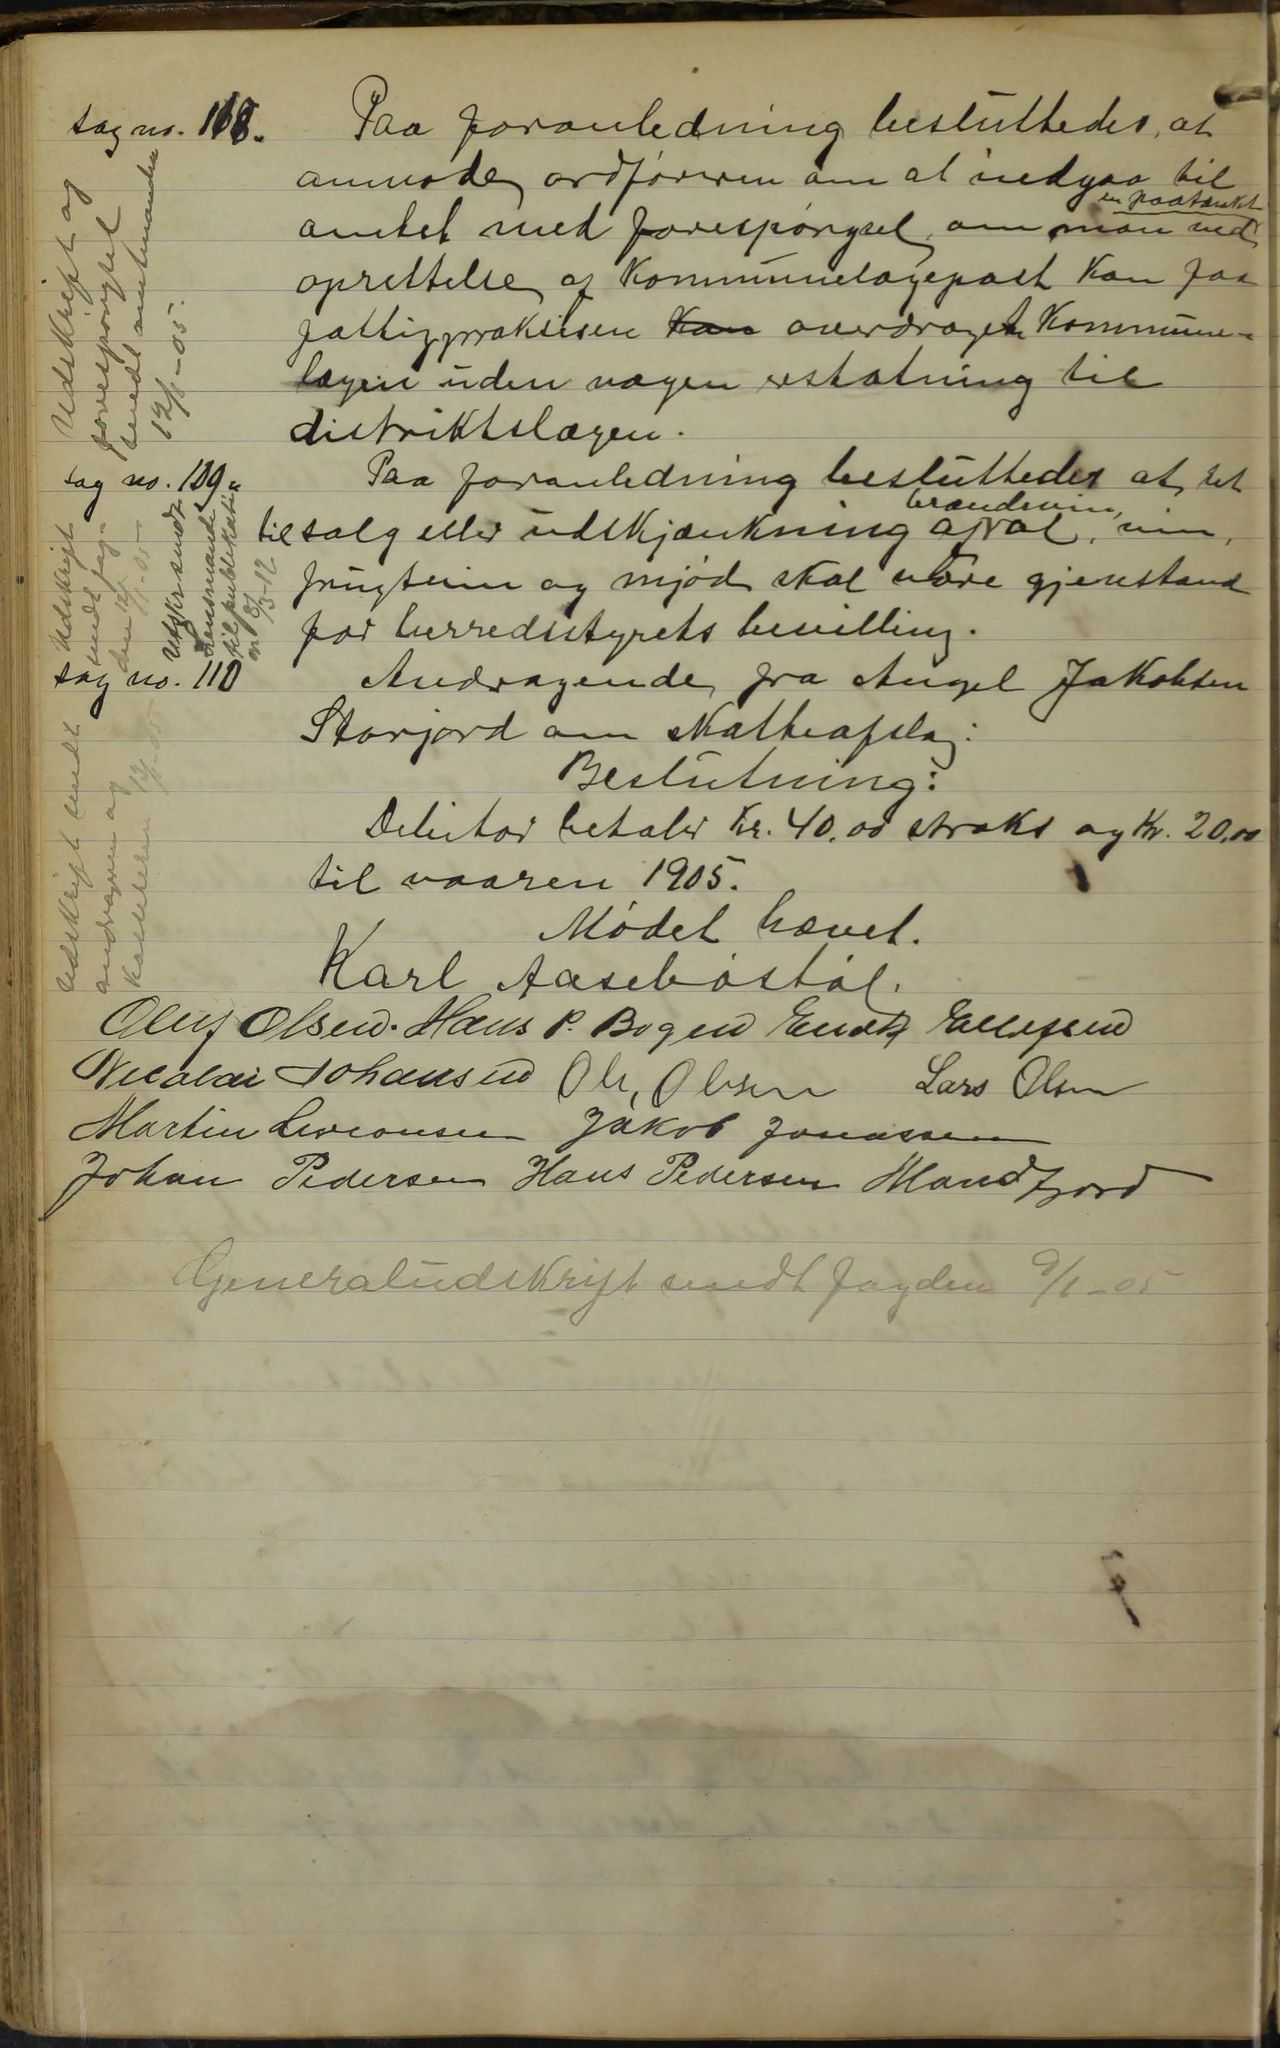 sag no. 108.
Paa foranledning besluttedes, at
anmode ordføreren om at indgaa til
amtet med forespørgsel, om man ved
en paatænkt
oprettelse af kommunelægepost kan faa
fattigpraksisen kan overdraget kommune-
lægen uden nogen erstatning til
distriktslægen.
Udskrift og
forespørgsel
sendt amtmanden
12/1-05.
sag no. 109.
Paa foranledning besluttedes at ret
brændevin,
til salg eller udskjænkning af øl, vin,
frugtvin og mjød skal være gjenstand
for herredsstyrets bevilling.
Udskrift
sendt fog-
den 12/1-05
Utskr. sendt
lensmand
til publikation
8/3-12
sag no. 110
Andragende fra Angel Jakobsen
Storjord om skatteafslag:
Beslutning:
Debitor betaler Kr. 40.00 straks og Kr. 20.00
til vaaren 1905.
Udskrift sendt
andrageren og
kassereren 12/1-05
Mødet hævet.
Karl Aasebøstøl.
Oluf Olsen. Hans P. Bogen Ellefsen
Nicolai Johansen Ole, Olsen Lars Olsen
Martin Jakob Jonassen
Johan Pedersen Hans Pedersen Mandfjord
Generaludskrift sendt fogden 9/1-05